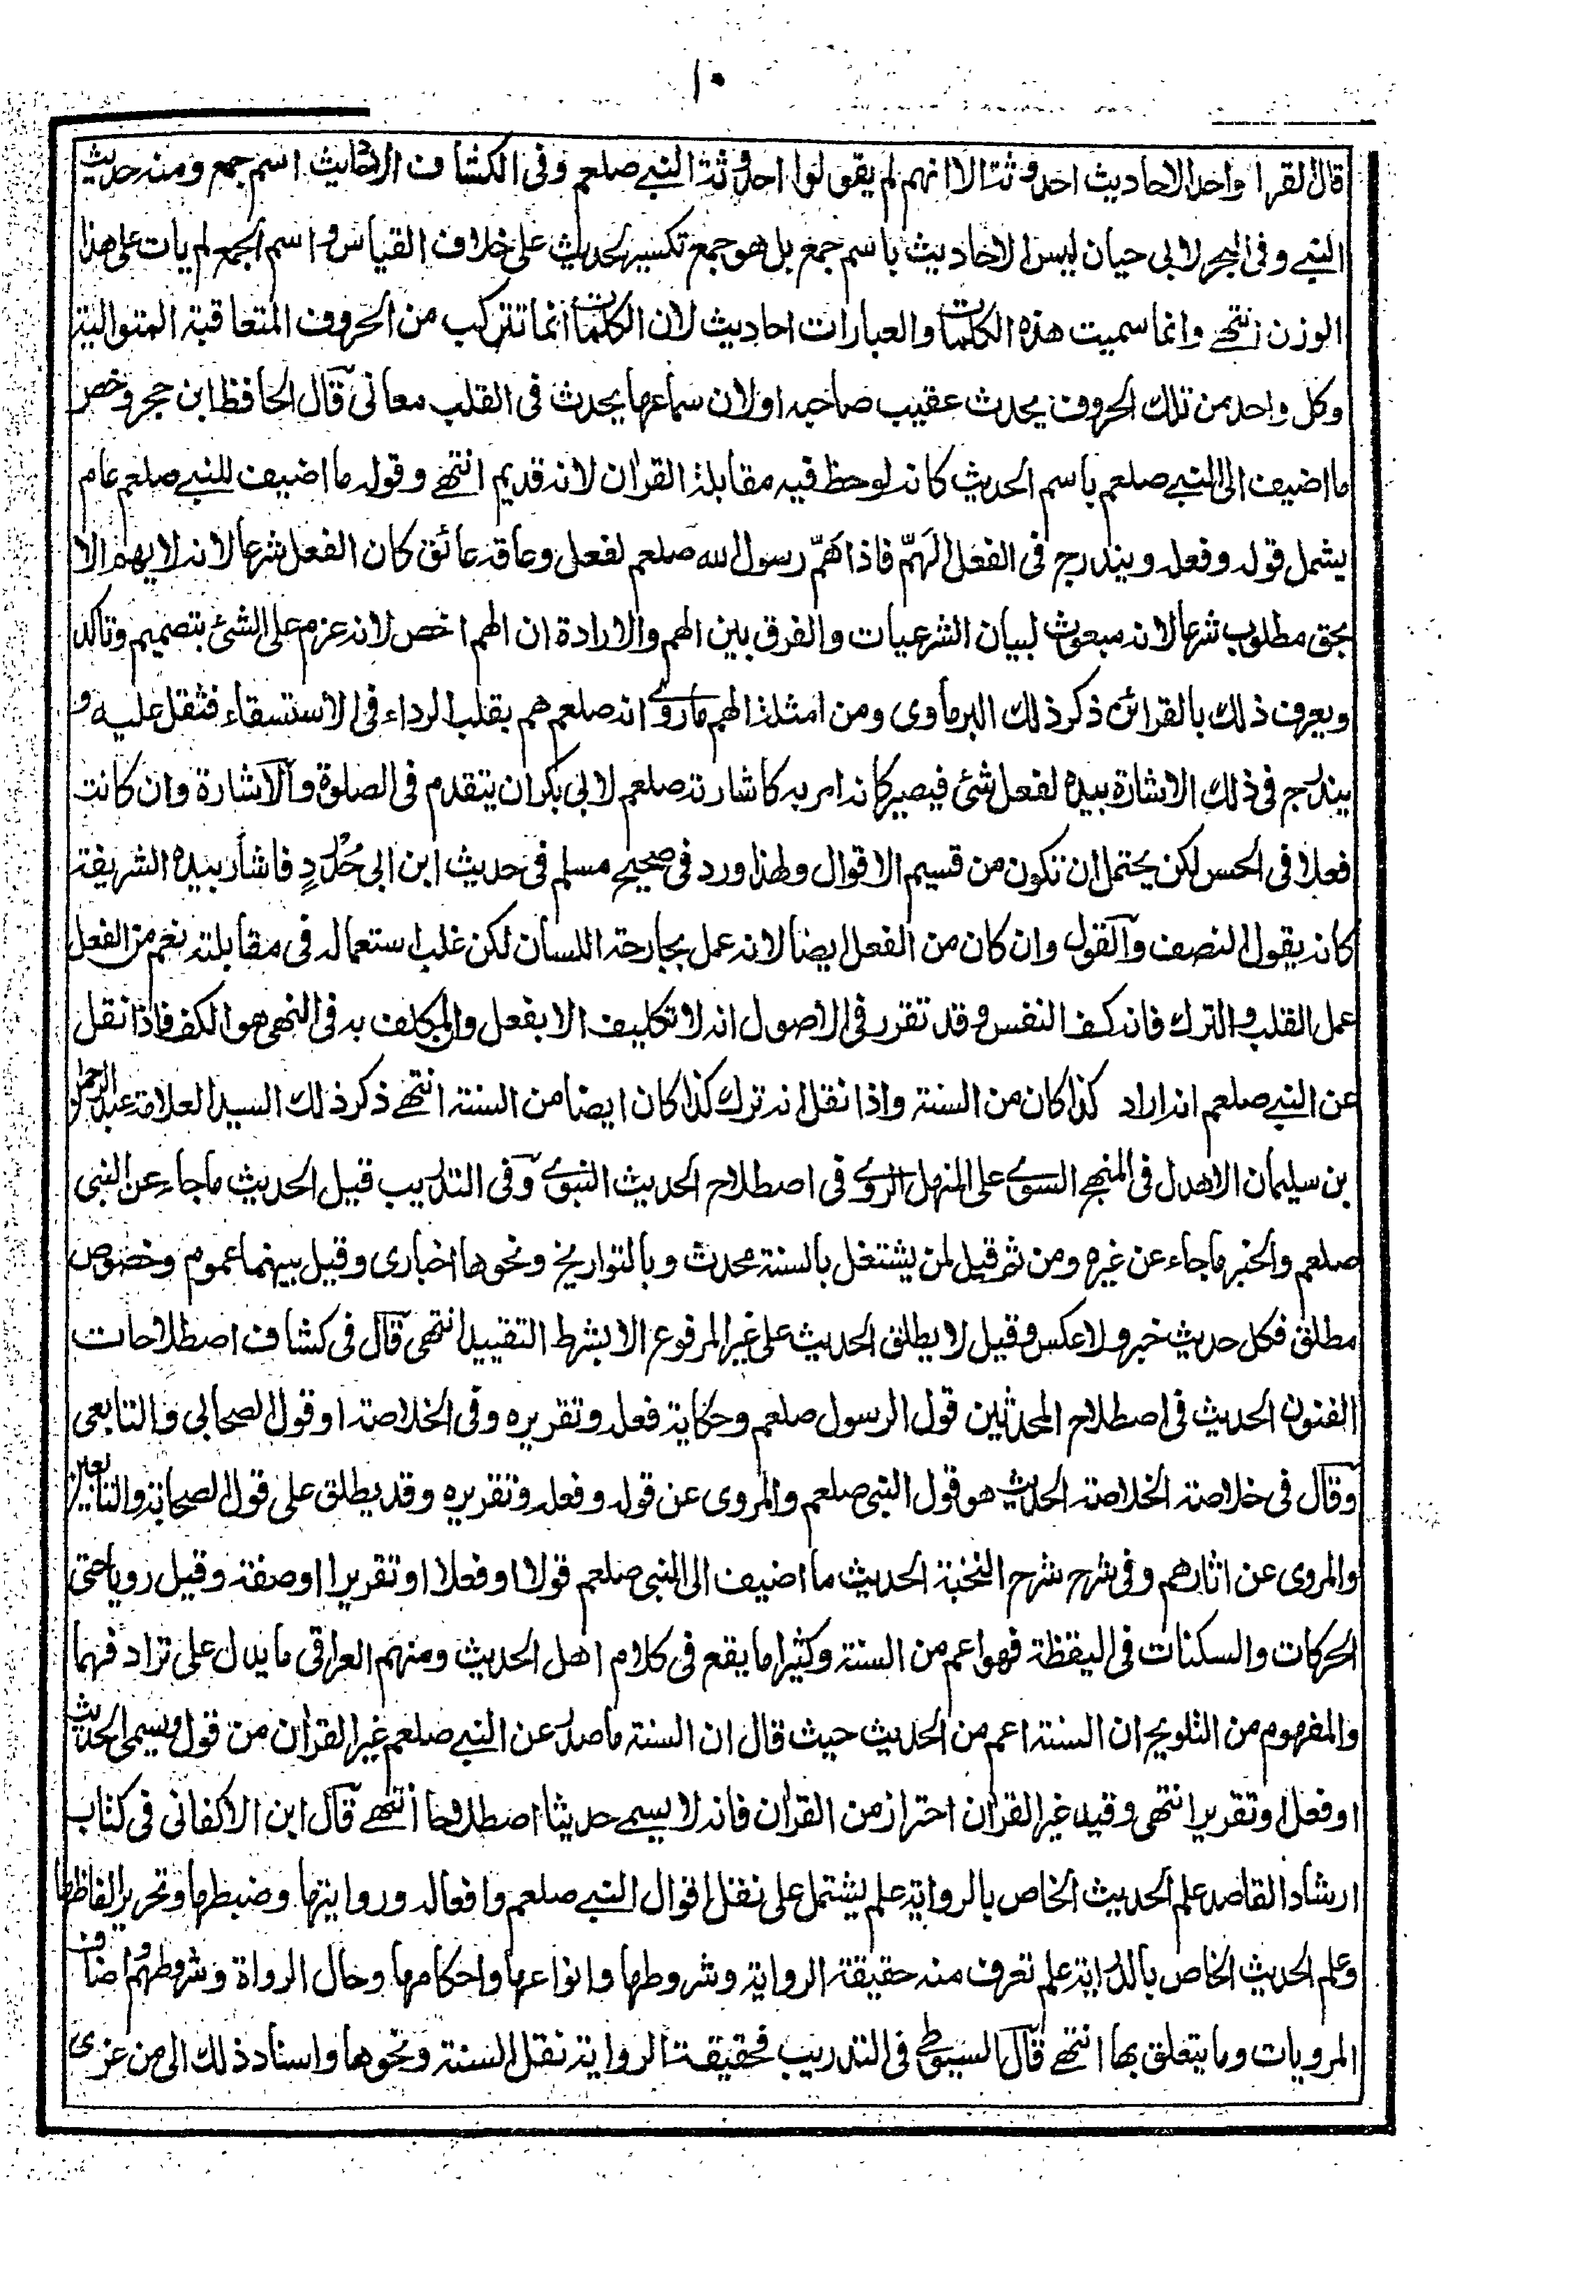 ١٠
قال القرا واحد الاحاديث احدوثة الا انهم لم يقولوا احدوثة النبي صلعم وفى الكشاف الاحاديث اسم جمع ومنه حديث
النبي وفى البحر لابى حيان ليس الاحاديث باسم جمع بل هو جمع تكسير لحديث على خلاف القياس واسم الجمع لم يات على هذا
الوزن انتهے وانما سميت هذه الكلمات والعبارات احاديث لان الكلمات انما تتركب من الحروف المتعاقبة المتوالية
وكل واحد من تلك الحروف يحدث عقيب صاحبه او لان سماعها يحدث فى القلب معانى قال الحافظ ابن حجر وخص
ما اضيف الى النبي صلعم باسم الحديث كانه لوحظ فيه مقابلة القران لانه قديم انتهے وقوله ما اضيف للنبي صلعم عام
يشمل قوله وفعله ويندرج فى الفعل الهَمّ فاذا هَمّ رسول الله صلعم لفعل وعاقه عائق كان الفعل شرعا لانه لا يهم الا
بحق مطلوب شرعا لانه مبعوث لبيان الشرعيات والفرق بين الهم والارادة ان الهم اخص لانه عزم على الشئ بتصميم وتاكد
ويعرف ذلك بالقرائن ذكر ذلك البرماوى ومن امثلة الهم ما روے انه صلعم هم بقلب الرداء فى الاستسقاء فثقل عليه و
يندرج فى ذلك الاشارة بيده لفعل شئ فيصير كانه امر به كاشارته صلعم لابى بكر ان يتقدم فى الصلوة والاشارة وان كانت
فعلا فى الحس لكن يحتمل ان تكون من قسيم الاقوال ولهذا ورد فى صحيح مسلم فى حديث ابن ابى حُدْرَدٍ فاشار بيده الشريفة
كانه يقول النصف والقول وان كان من الفعل ايضا لانه عمل بجارحة اللسان لكن غلب استعماله فى مقابلته نعم من الفعل
عمل القلب والترك فانه كف النفس وقد تقرر فى الاصول انه لا تكليف الا بفعل والمكلف به فى النهى هو الكف فاذا نقل
عن النبي صلعم انه اراد كذا كان من السنة واذا نقل انه ترك كذا كان ايضا من السنة انتهے ذكر ذلك السيد العلامة عبد الرحمن
بن سليمان الاهدل فى المنهج السوے على المنهل الروے فى اصطلاح الحديث النبوے وفى التدريب قيل الحديث ما جاء عن النبى
صلعم والخبر ما جاء عن غيره ومن ثم قيل لمن يشتغل بالسنة محدث وبالتواريخ ونحوها اخبارى وقيل بينهما عموم وخصوص
مطلق فكل حديث خبر ولا عكس وقيل لا يطلق الحديث على غير المرفوع الا بشرط التقييد انتهى قال فى كشاف اصطلاحات
الفنون الحديث فى اصطلاح المحدثين قول الرسول صلعم وحكاية فعله وتقريره وفى الخلاصة او قول الصحابى والتابعى
وقال فى خلاصة الخلاصة الحديث هو قول النبى صلعم والمروى عن قوله وفعله وتقريره وقد يطلق على قول الصحابة والتابعين
والمروى عن اثارهم وفى شرح شرح النخبة الحديث ما اضيف الى النبى صلعم قولا او فعلا او تقريرا او صفة وقيل رويا حتى
الحركات والسكنات فى اليقظة فهو اعم من السنة وكثيرا ما يقع فى كلام اهل الحديث ومنهم العراقى ما يدل على ترادفهما
والمفهوم من التلويح ان السنة اعم من الحديث حيث قال ان السنة ما صدر عن النبي صلعم غير القران من قول ويسمى الحديث
او فعل او تقرير انتهى وقيد غير القران احتراز من القران فانه لا يسمے حديثا اصطلاحا انتهے قال ابن الاكفانى فى كتاب
ارشاد القاصد علم الحديث الخاص بالرواية علم يشتمل على نقل اقوال النبي صلعم وافعاله وروايتها وضبطها وتحرير الفاظها
وعلم الحديث الخاص بالدراية علم تعرف منه حقيقة الرواية وشروطها وانواعها واحكامها وحال الرواة وشروطهم واصناف
المرويات وما يتعلق بها انتهے قال السيوطے فى التدريب فحقيقة الرواية نقل السنة ونحوها واسناد ذلك الى من عزى